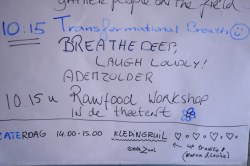 gather people on the field
10:15 Transformational Breath
BREATHE DEEP,
LAUGH LOUDLY!
ADEMZOLDER
10.15 u Rawfood Workshop
in de theetent
ZATERDAG 14.00-15.00 KLEDINGRUIL